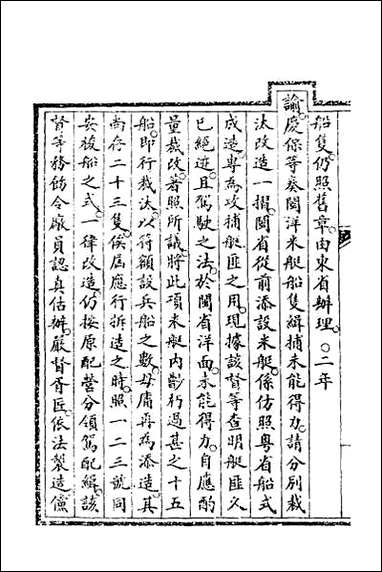 船隻仍照舊章由東省辦理○二年
諭慶保等奏閩洋米艇船隻緝捕未能得力請分別裁
汰改造一摺閩省從前添設米艇係仿照粵省船式
成造專為攻捕艇匪之用現據該督等查明艇匪久
已絕迹且駕駛之法於閩省洋面未能得力自應酌
量裁改著照所議將此項米艇內齡朽過甚之十五
船即行裁汰以符額設兵船之數毋庸再為添造其
尚存二十三隻俟屆應行拆造之時照一二三號同
安梭船之式一律改造仍按原配營分領駕配緝該
督等務飭令廠員認真估辦嚴督胥匠依法製造儻